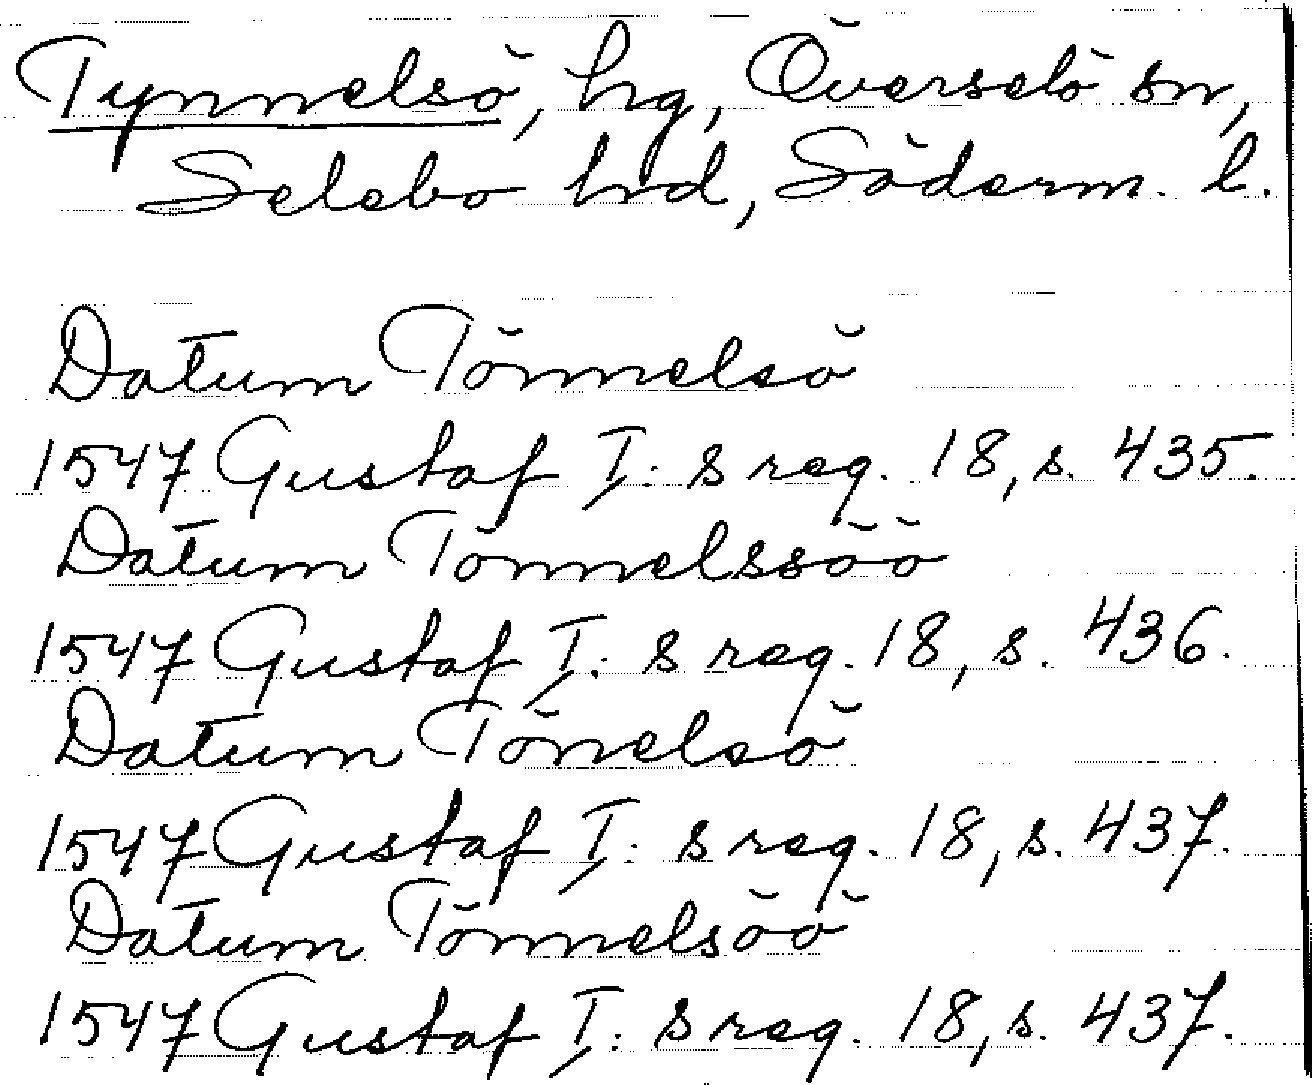 Tynnelsö, hg, Överselö sn,
Selebo hrd, Söderm. l.
Datum Tönnelsö
1547 Gustaf I:s reg. 18, s. 435.
Datum Tönnelssöö
1547 Gustaf I:s reg. 18, s. 436.
Datum Tönelsö
1547 Gustaf I:s reg. 18, s. 437.
Datum Tönnelsöö
1547 Gustaf I:s reg. 18, s. 437.